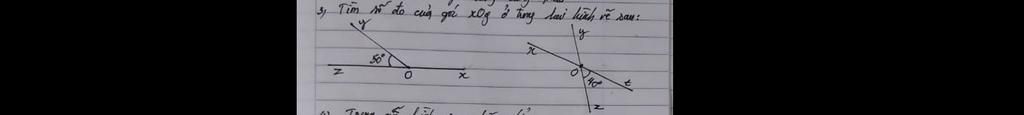 3, Tìm số đo của góc xOy ở từng hình vẽ sau:
y
50°
z O x
x y
O 40° t
z